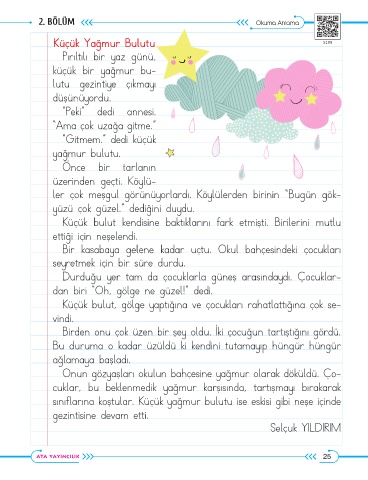 2. BÖLÜM
Okuma Anlama
Küçük Yağmur Bulutu
Pırıltılı bir yaz günü,
küçük bir yağmur bu-
lutu gezintiye çıkmayı
düşünüyordu.
"Peki" dedi annesi.
"Ama çok uzağa gitme."
"Gitmem." dedi küçük
yağmur bulutu.
Önce bir tarlanın
üzerinden geçti. Köylü-
ler çok meşgul görünüyorlardı. Köylülerden birinin "Bugün gök-
yüzü çok güzel." dediğini duydu.
Küçük bulut kendisine baktıklarını fark etmişti. Birilerini mutlu
ettiği için neşelendi.
Bir kasabaya gelene kadar uçtu. Okul bahçesindeki çocukları
seyretmek için bir süre durdu.
Durduğu yer tam da çocuklarla güneş arasındaydı. Çocuklar-
dan biri "Oh, gölge ne güzel!" dedi.
Küçük bulut, gölge yaptığına ve çocukları rahatlattığına çok se-
vindi.
Birden onu çok üzen bir şey oldu. İki çocuğun tartıştığını gördü.
Bu duruma o kadar üzüldü ki kendini tutamayıp hüngür hüngür
ağlamaya başladı.
Onun gözyaşları okulun bahçesine yağmur olarak döküldü. Ço-
cuklar, bu beklenmedik yağmur karşısında, tartışmayı bırakarak
sınıflarına koştular. Küçük yağmur bulutu ise eskisi gibi neşe içinde
gezintisine devam etti.
Selçuk YILDIRIM
ATA YAYINCILIK
25